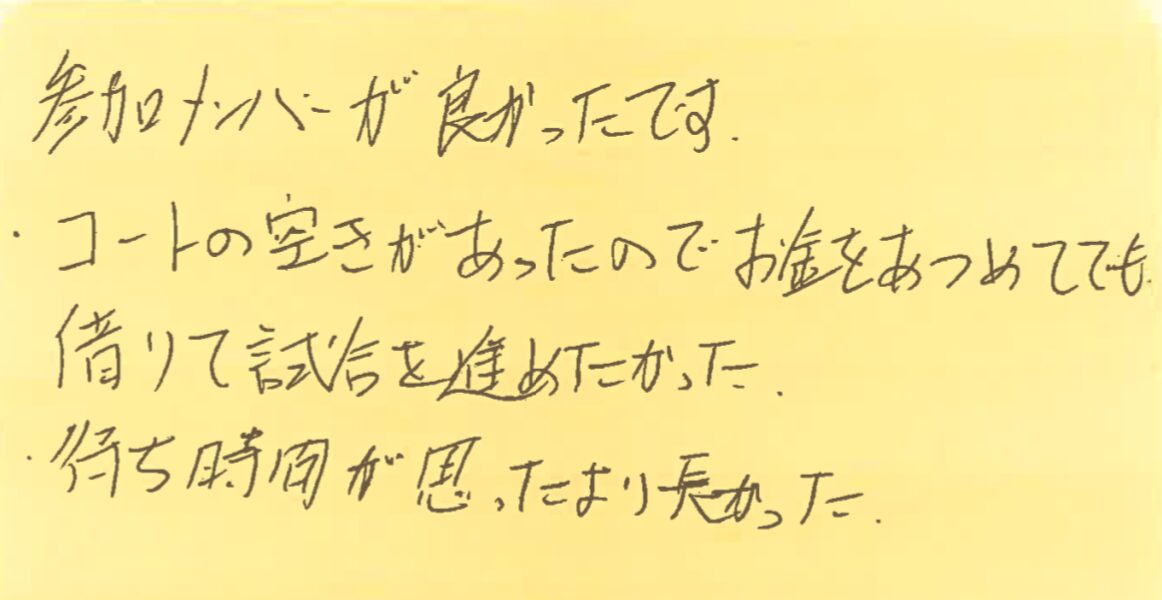 参加メンバーが良かったです.
・コートの空きがあったのでお金をあつめてでも
借りて試合を進めたかった.
・待ち時間が思ったより長かった.